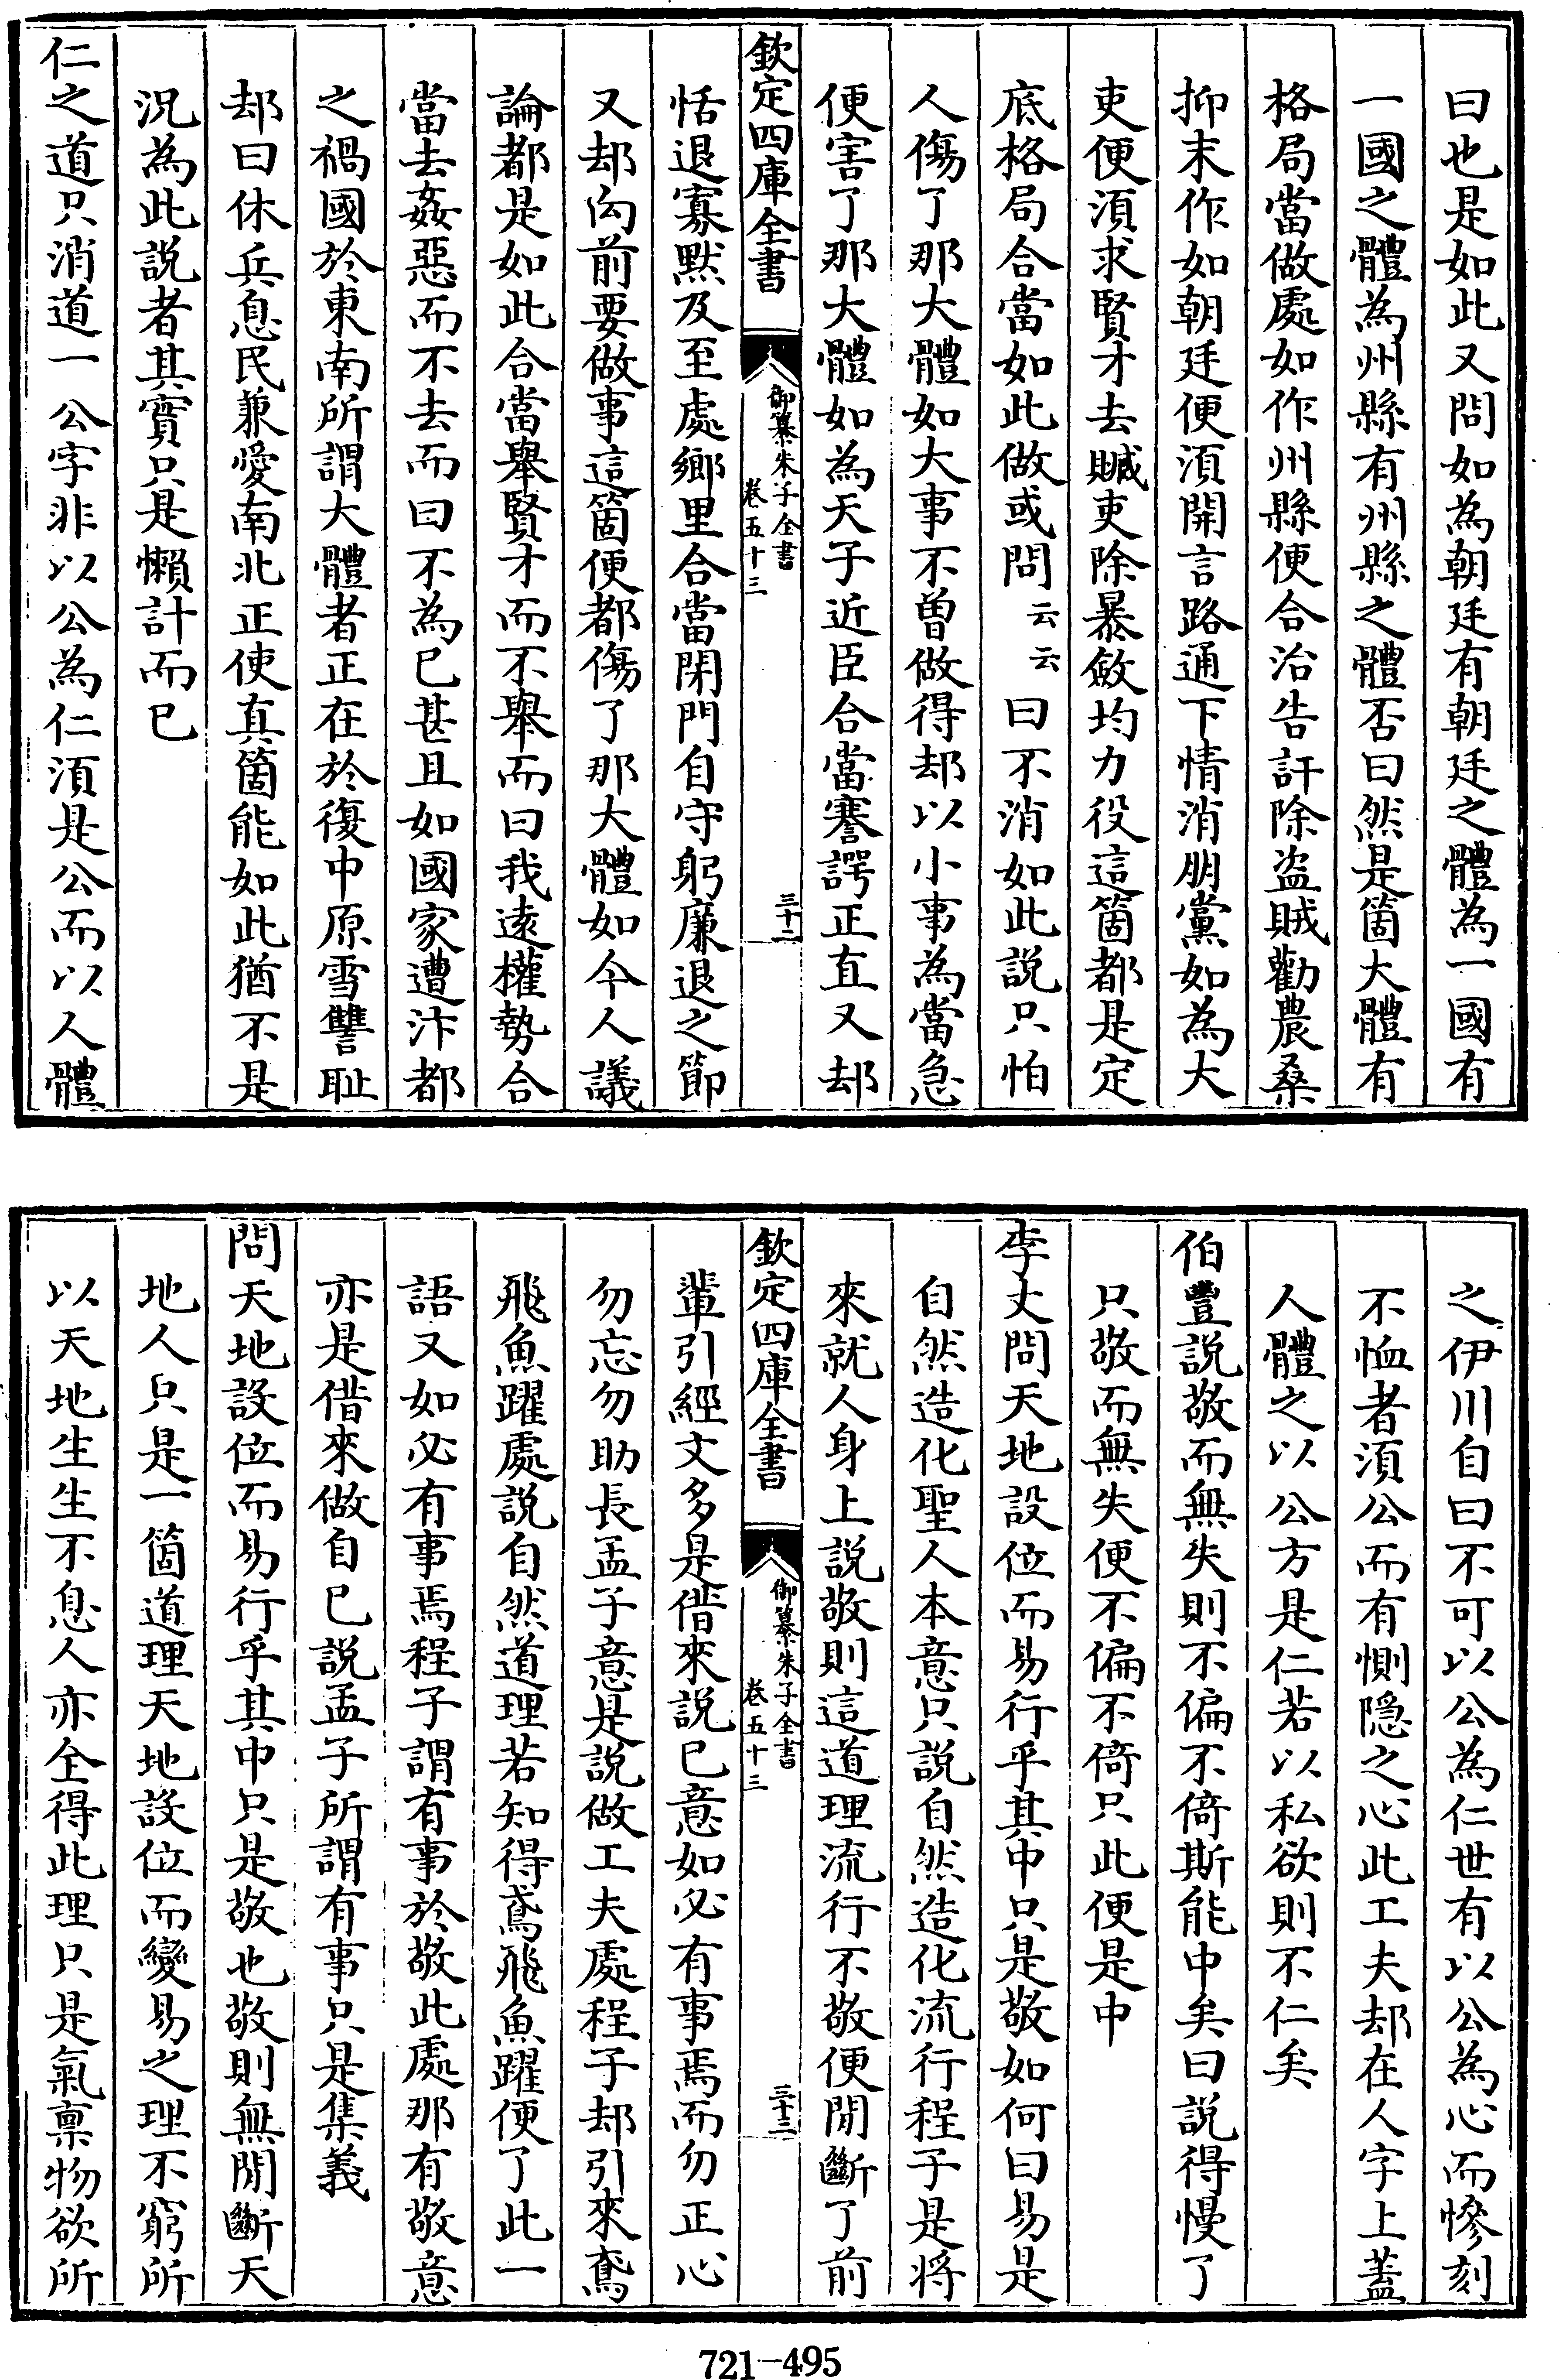 曰也是如此又問如為朝廷有朝廷之體為一國有
一國之體為州縣有州縣之體否曰然是箇大體有
格局當做處如作州縣便合治告訐除盜賊勸農桑
抑末作如朝廷便須開言路通下情消朋黨如為大
吏便須求賢才去贓吏除暴斂均力役這箇都是定
底格局合當如此做或問云云曰不消如此説只怕
人傷了那大體如大事不曾做得却以小事為當急
便害了那大體如為天子近臣合當謇諤正直又却
欽定四庫全書
御纂朱子全書
卷五十三
三十二
恬退寡黙及至處鄉里合當閉門自守躬廉退之節
又却向前要做事這箇便都傷了那大體如今人議
論都是如此合當舉賢才而不舉而曰我遠權勢合
當去姦惡而不去而曰不為已甚且如國家遭汴都
之禍國於東南所謂大體者正在於復中原雪讐恥
却曰休兵息民兼愛南北正使真箇能如此猶不是
況為此説者其實只是懶計而已
仁之道只消道一公字非以公為仁須是公而以人體
之伊川自曰不可以公為仁世有以公為心而慘刻
不恤者須公而有惻隠之心此工夫却在人字上蓋
人體之以公方是仁若以私欲則不仁矣
伯豐説敬而無失則不偏不倚斯能中矣曰説得慢了
只敬而無失便不偏不倚只此便是中
李丈問天地設位而易行乎其中只是敬如何曰易是
自然造化聖人本意只説自然造化流行程子是將
來就人身上説敬則這道理流行不敬便間斷了前
欽定四庫全書
御纂朱子全書
卷五十三
三十三
輩引經文多是借來説已意如必有事焉而勿正心
勿忘勿助長孟子意是説做工夫處程子却引來鳶
飛魚躍處説自然道理若知得鳶飛魚躍便了此一
語又如必有事焉程子謂有事於敬此處那有敬意
亦是借來做自已説孟子所謂有事只是集義
問天地設位而易行乎其中只是敬也敬則無間斷天
地人只是一箇道理天地設位而變易之理不窮所
以天地生生不息人亦全得此理只是氣禀物欲所
721-495